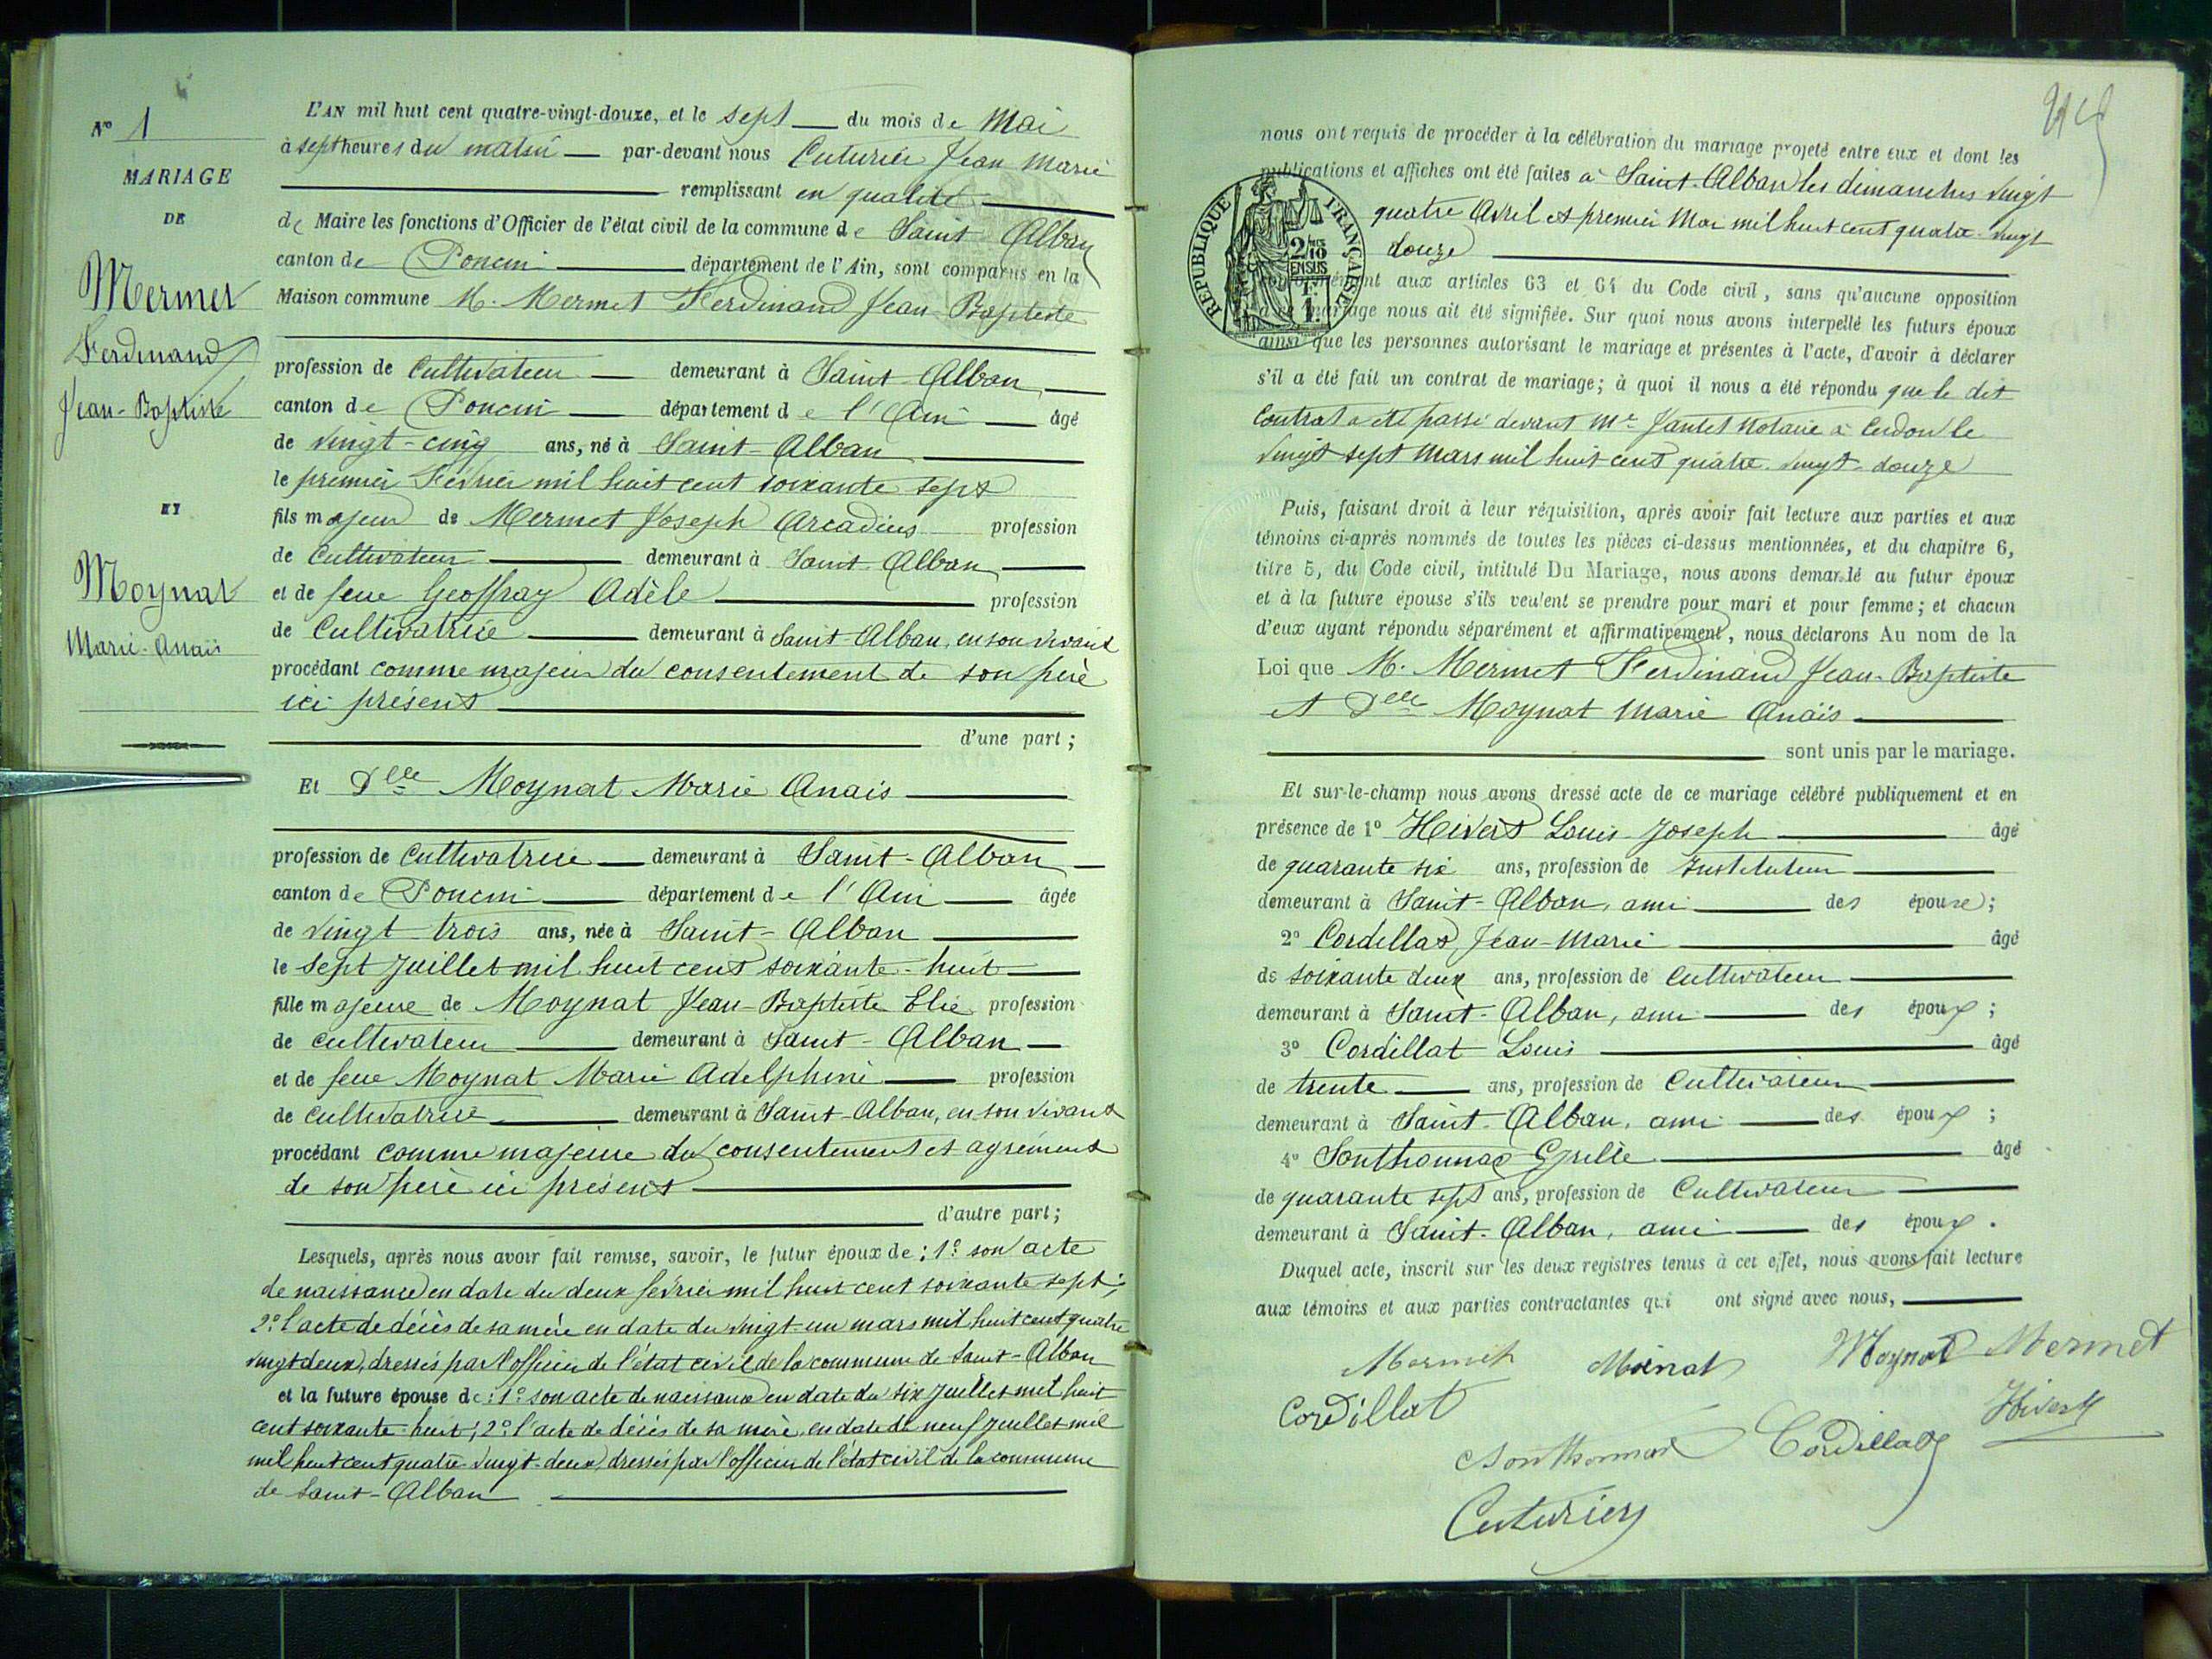 N° 1
MARIAGE
DE
Mermet
Ferdinand
Jean-Baptiste
ET
Moynat
Marie-Anaïs
L'AN mil huit cent quatre-vingt-douze, et le sept du mois de Mai
à sept heures du matin par-devant nous Cuturier Jean Marie
remplissant en qualité
de Maire les fonctions d'Officier de l'état civil de la commune de Saint Alban
canton de Poncin département de l'Ain, sont comparus en la
Maison commune M. Mermet Ferdinand Jean-Baptiste
profession de Cultivateur demeurant à Saint-Alban
canton de Poncin département de l'Ain âgé
de vingt-cinq ans, né à Saint-Alban
le premier Février mil huit cent soixante sept
fils majeur de Mermet Joseph Arcadius profession
de Cultivateur demeurant à Saint-Alban
et de feue Geoffray Adèle profession
de Cultivatrice demeurant à Saint-Alban, en son vivant
procédant comme majeur du consentement de son père
ici présent
d'une part ;
Et Delle Moynat Marie Anais
profession de Cultivatrice demeurant à Saint-Alban
canton de Poncin département de l'Ain âgée
de vingt trois ans, née à Saint-Alban
le sept Juillet mil huit cent soixante-huit
fille majeure de Moynat Jean-Baptiste Elie profession
de cultivateur demeurant à Saint-Alban
et de feue Moynat Marie Adelphine profession
de cultivatrice demeurant à Saint-Alban, en son vivant
procédant comme majeure du consentement et agrément
de son père ici présent
d'autre part ;
Lesquels, après nous avoir fait remise, savoir, le futur époux de : 1° son acte
de naissance en date du deux février mil huit cent soixante sept ;
2° l'acte de décès de sa mère en date du vingt-un mars mil huit cent quatre
vingt deux, dressés par l'officier de l'état civil de la commune de Saint-Alban
et la future épouse de : 1° son acte de naissance en date du six Juillet mil huit
cent soixante-huit ; 2° l'acte de décès de sa mère, en date du neuf Juillet mil
mil huit cent quatre-vingt-deux, dressés par l'officier de l'état civil de la commune
de Saint-Alban
nous ont requis de procéder à la célébration du mariage projeté entre eux et dont les
publications et affiches ont été faites à Saint-Alban les dimanches vingt
quatre Avril et premier Mai mil huit cent quatre-vingt
douze
RÉPUBLIQUE FRANÇAISE
2/10
EN SUS
1 F.
conformément aux articles 63 et 64 du Code civil, sans qu'aucune opposition
à ce mariage nous ait été signifiée. Sur quoi nous avons interpellé les futurs époux
ainsi que les personnes autorisant le mariage et présentes à l'acte, d'avoir à déclarer
s'il a été fait un contrat de mariage; à quoi il nous a été répondu que le dit
Contrat a été passé devant Me Jantet Notaire à Cerdon le
vingt sept Mars mil huit cent quatre-vingt-douze
Puis, faisant droit à leur réquisition, après avoir fait lecture aux parties et aux
témoins ci-après nommés de toutes les pièces ci-dessus mentionnées, et du chapitre 6,
titre 5, du Code civil, intitulé Du Mariage, nous avons demandé au futur époux
et à la future épouse s'ils veulent se prendre pour mari et pour femme ; et chacun
d'eux ayant répondu séparément et affirmativement, nous déclarons Au nom de la
Loi que M. Mermet Ferdinand Jean-Baptiste
et Delle Moynat Marie Anaïs
sont unis par le mariage.
Et sur-le-champ nous avons dressé acte de ce mariage célébré publiquement et en
présence de 1° Hivert Louis-Joseph âgé
de quarante six ans, profession de Instituteur
demeurant à Saint-Alban, ami des épouse;
2° Cordillat Jean-Marie âgé
de soixante deux ans, profession de Cultivateur
demeurant à Saint-Alban, ami des époux ;
3° Cordillat Louis âgé
de trente ans, profession de Cultivateur
demeurant à Saint-Alban, ami des époux ;
4° Sonthonnac Cyrille âgé
de quarante sept ans, profession de Cultivateur
demeurant à Saint-Alban, ami des époux.
Duquel acte, inscrit sur les deux registres tenus à cet effet, nous avons fait lecture
aux témoins et aux parties contractantes qui ont signé avec nous,
Mermet Moinat Moynat Mermet
Cordillat Hivert
Sonthonnax Cordillat
Cuturier